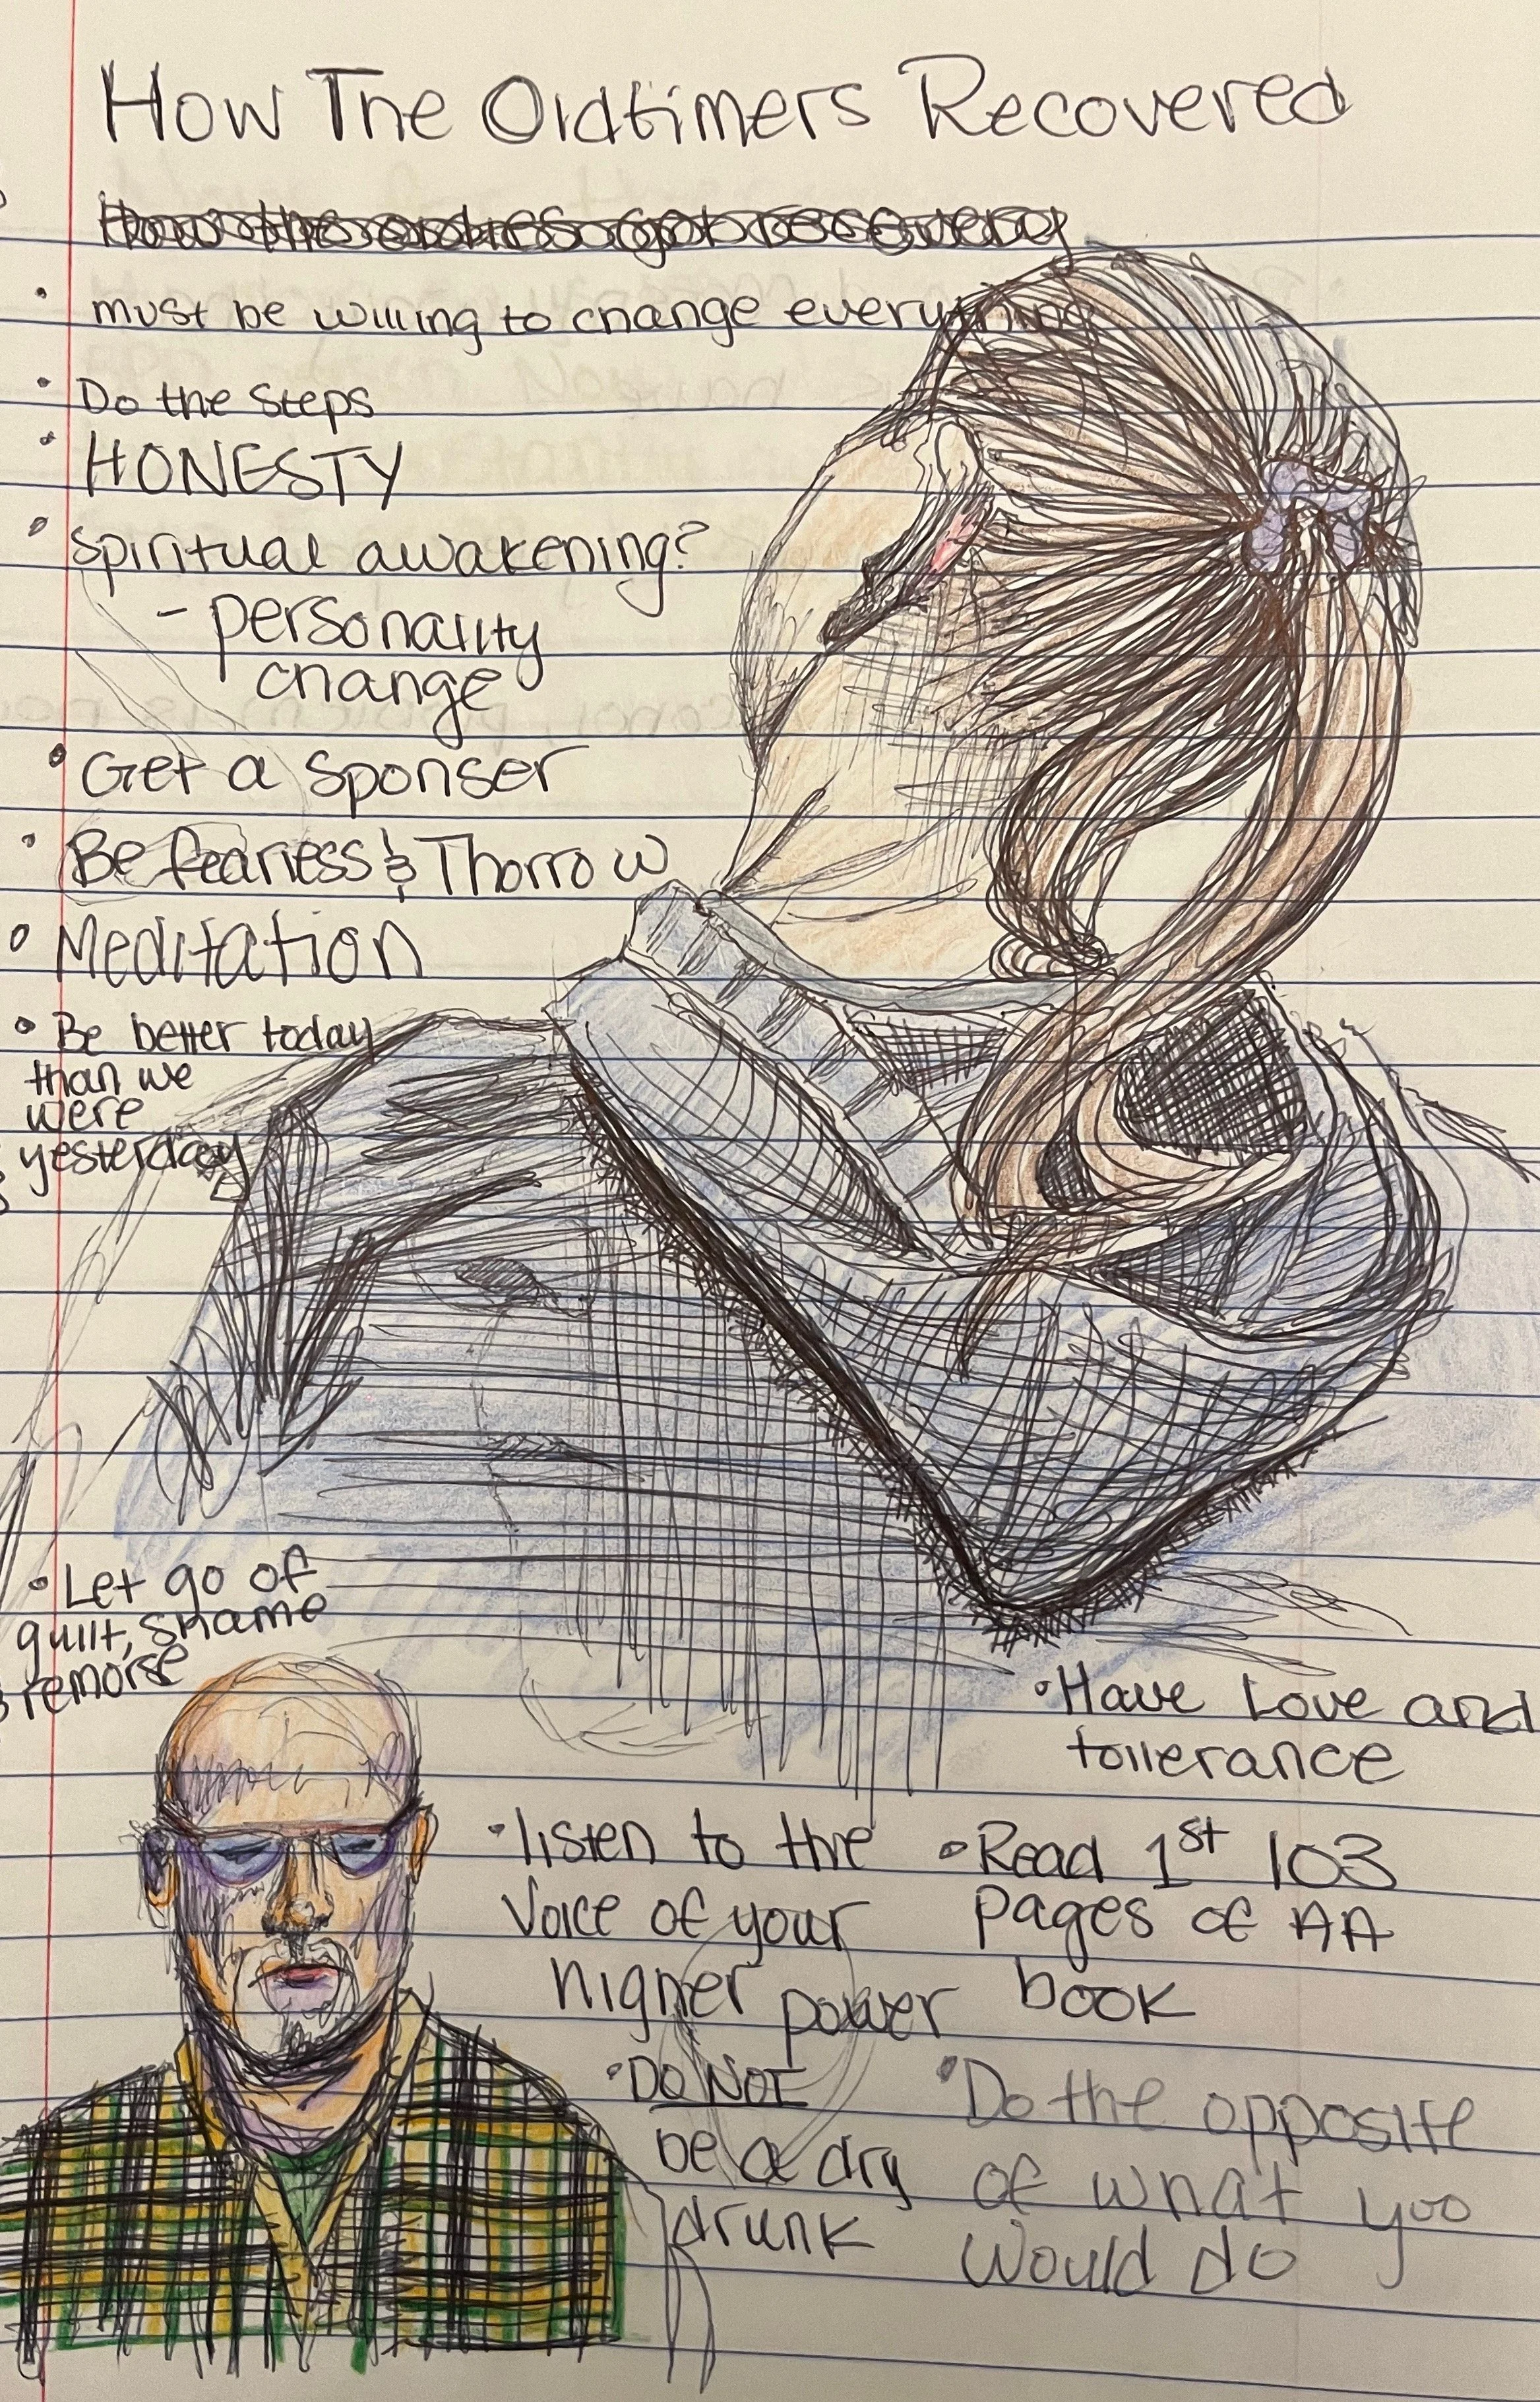 How The Oldtimers Recovered
• must be willing to change everything
• Do the steps
• HONESTY
• Spiritual awakening?
- personality
change
• Get a sponser
• Be fearless & Thorrow
• Meditation
• Be better today
than we
were
yesterday
• Let go of
guilt, shame
remorse
• Have Love and
tollerance
• listen to the
Voice of your
higher power
• Read 1st 103
pages of AA
book
• DO NOT
be a dry
drunk
• Do the opposite
of what you
would do